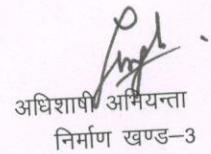 अधिशाषी अभियन्ता
निर्माण खण्ड–3